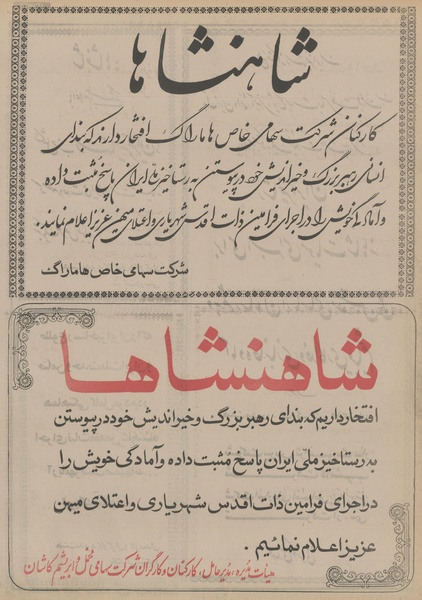 شاهنشاها
کارکنان شرکت سهامی خاص هاماراگ افتخار دارند که بندای
انسانی رهبر بزرگ و خیراندیش خود در پیوستن به رستاخیز ملی ایران پاسخ مثبت داده
و آمادگی خویش را در اجرای فرامین ذات اقدس شهریاری و اعتلای میهن عزیز اعلام نمایند.
شرکت سهامی خاص هاماراگ
شاهنشاها
افتخار داریم که بندای رهبر بزرگ و خیراندیش خود در پیوستن
به رستاخیز ملی ایران پاسخ مثبت داده و آمادگی خویش را
در اجرای فرامین ذات اقدس شهریاری و اعتلای میهن
عزیز اعلام نمائیم .
هیأت مدیره، مدیر عامل، کارکنان و کارگران شرکت سهامی مخمل و ابریشم کاشان